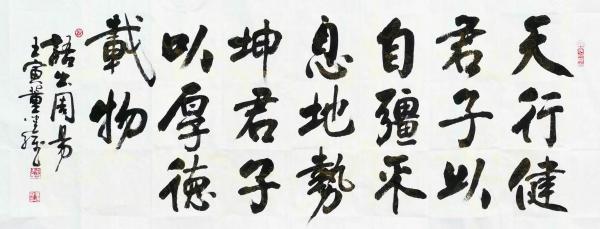 天行健
君子以
自彊不
息地勢
坤君子
以厚德
載物
語出周易
壬寅董